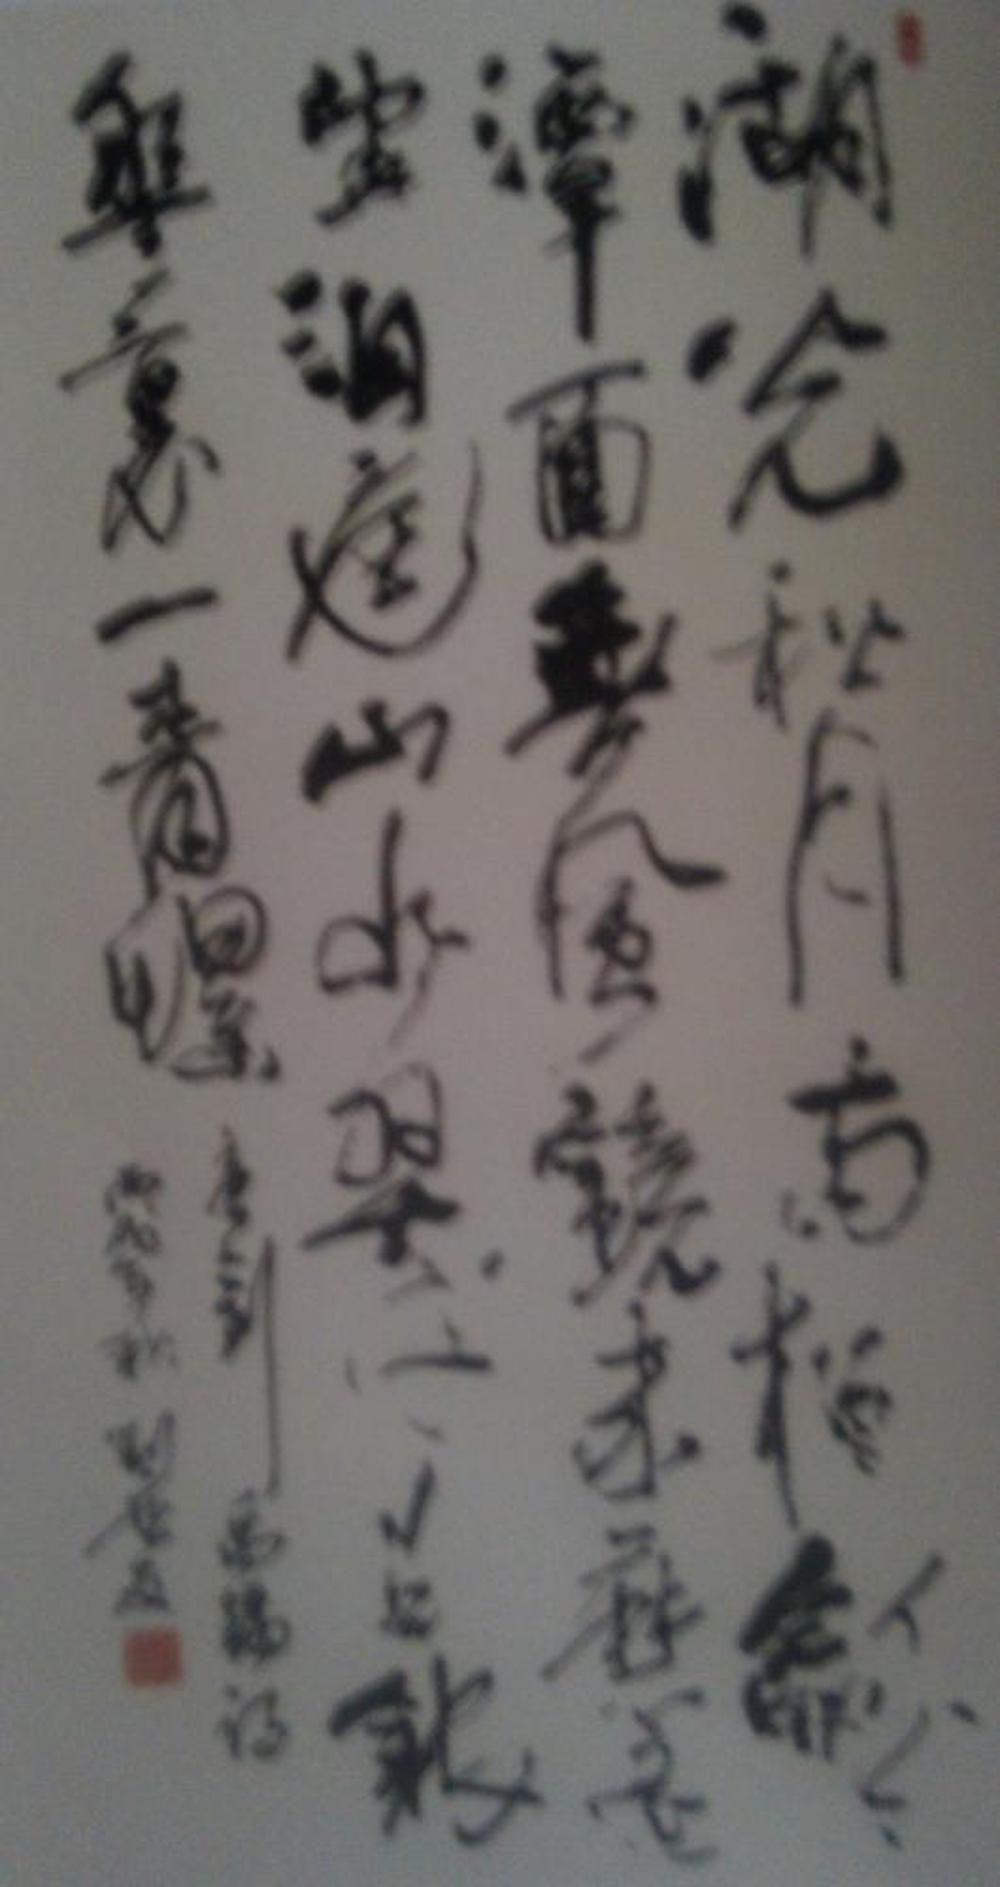 湖光秋月两相龢
潭面無風鏡未磨遥
望洞庭山水翠白銀
盤裏一青螺
唐劉禹錫詩
年秋